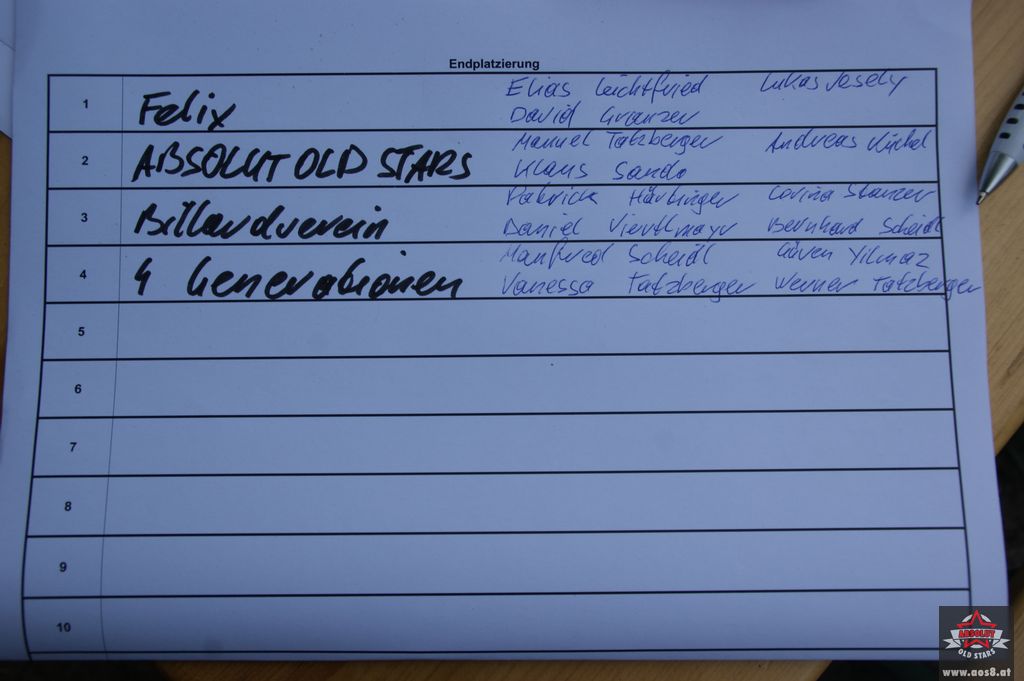 Endplatzierung
1 Felix Elias Leichtfried Lukas Vesely
David Granzer
2 ABSOLUT OLD STARS Manuel Tatzberger Andreas Küchel
Klaus Sando
3 Billardverein Patrick Härtinger Corina Stanzer
Daniel Viertlmayr Bernhard Scheidl
4 4 Generationen Manfred Scheidl Güven Yilmaz
Vanessa Tatzberger Werner Tatzberger
5
6
7
8
9
10
ABSOLUT
OLD STARS
www.aos8.at